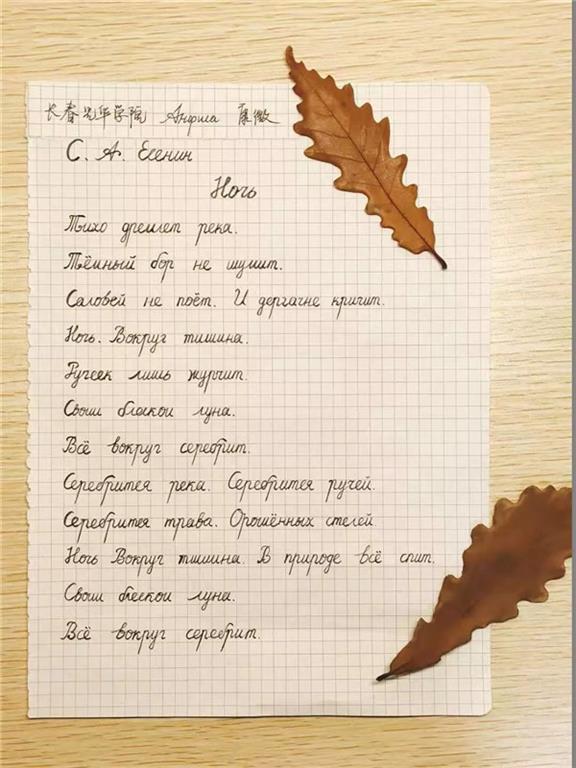 长春光华学院 Анфиша 康微
С. А. Есенин
Ночь
Тихо дремлет река.
Тёмный бор не шумит.
Саловей не поёт. И дергачне кричит.
Ночь. Вокруг тишина.
Ручеек лишь журчит.
Своим блеском луна.
Всё вокруг серебрит.
Серебрится река. Серебрится ручей.
Серебрится трава. Орошённых степей
Ночь Вокруг тишина. В природе всё спит.
Своим блеском луна.
Всё вокруг серебрит.